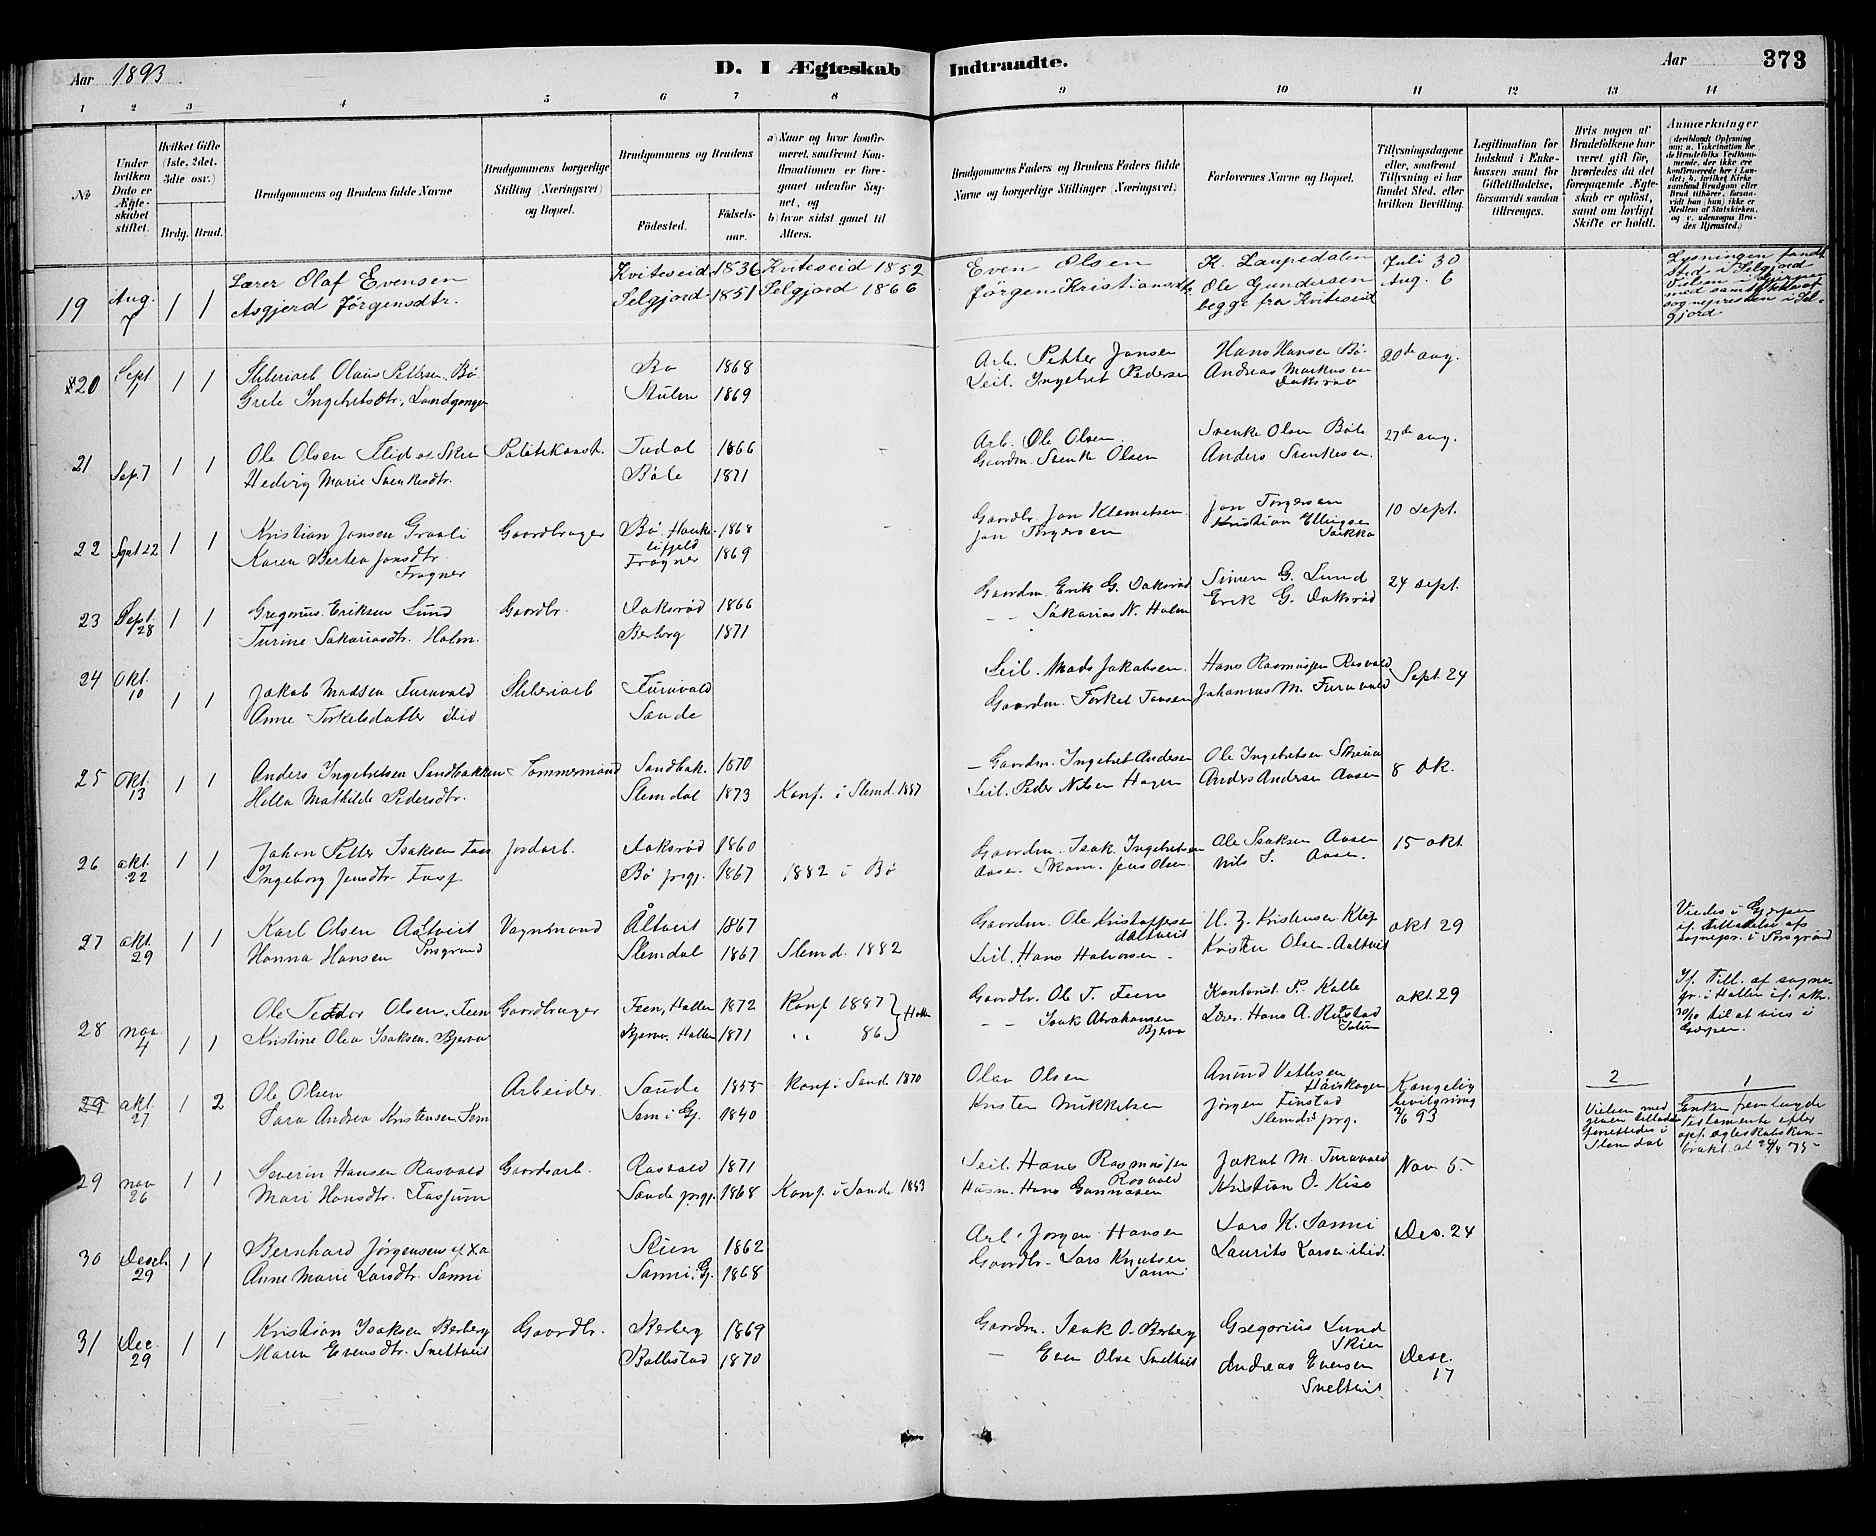 Aar 1893.
D. I Ægteskab Indtraadte.
Aar 373
1 2 3 4 5 6 7 8 9 10 11 12 13 14
No.
Under hvilken Dato er Ægteskabet stiftet.
Hvilket Gifte (1ste, 2det, 3die osv.)
Brdg. Brud.
Brudgommens og Brudens fulde Navne
Brudgommens borgerlige Stilling (Næringsvei) og Bopæl.
Brudgommens og Brudens
Fødested. Fødselsaar.
a) Naar og hvor konfirmeret, saafremt Konfirmationen er foregaaet udenfor Sognet, og
b) hvor sidst gaaet til Alters.
Brudgommens Faders og Brudens Faders fulde Navne og borgerlige Stillinger (Næringsvei)
Forlovernes Navne og Bopæl.
Tillysningsdagene eller, saafremt Tillysning ei har fundet Sted, efter hvilken Bevilling.
Legitimation for Indskud i Enkekassen samt for Giftetilladelse, forsaavidt saadan tiltrænges.
Hvis nogen af Brudefolkene har været gift før, hvorledes da det foregaaende Ægteskab er opløst, samt om lovligt Skifte er holdt.
Anmærkninger
19 Aug. 7 1 1 Lærer Olaf Evensen Kviteseid 1836 Kviteseid 1852 Even Olsen K. Laupedalen Juli 30
Asgjerd Jørgensdtr. Selgjord 1851 Selgjord 1866 Jørgen Kristiansdtr Ole Gundersen Aug. 6
begge fra Kviteseid
Lysningen fandt
sted i Selgjord
Vielsen i Gjerpen
med samtykke af
sognepresten i Sel-
gjord
20 Sept 1 1 Sliberiarb Olaus Pettersen, Bø Bø 1868 Arb. Petter Jansen Hans Hansen Bø 20de aug.
Grete Ingebretsdtr, Landgangen Stulen 1869 Leil. Ingebret Pedersen Andreas Markusen
Daksrød
21 Sep. 7 1 1 Ole Olsen Lid af Skien Politikonst. Tudal 1866 Arb. Ole Olsen Svenke Olsen Bøle 27de aug.
Hedvig Marie Svenkesdtr. Bøle 1871 Gaardm. Svenke Olsen Anders Svenkesen
22 Sept 22 1 1 Kristian Jansen Graali Gaardbruger Bø Hauke- 1868 Gaardbr. Jan Klemetsen Jan Torgersen 10 Sept.
lifjeld
Karen Bertea Jansdtr Fragner 1869 Jan Torgersen Kristian Ellingsen
Fragner
23 Sept. 28 1 1 Gregorius Eriksen Lund Gaardbr. Daksrød 1866 Gaardm. Erik G. Daksrød Simen G. Lund 24 Sept.
Turine Sakariasdtr. Holm. Berberg 1871 Sakarias N. Holm Erik G. Daksrød
24 Okt. 10 1 1 Jakob Madsen Furuvald Sliberiarb Furuvald Leil. Mads Jakobsen Hans Rasmussen Rasvald Sept. 24
Anne Torkelsdatter ibid Sande Gaardm. Torkel Jansen Johannes M. Furuvald
25 Okt. 13 1 1 Anders Ingebretsen Sandbakken Tømmermand Sandbak. 1870 Gaardm. Ingebret Andersen Ole Ingebretsen Skreua 8 Ok.
Hella Mathilde Pedersdtr. Slemdal 1873 Konf. i Slemd. 1887 Leil. Peder Nilsen Hagen Anders Andersen Aasen
26 okt. 22 1 1 Johan Petter Isaksen Foss Jordarb. Daksrød 1860 Gaardm. Isak Ingebretsen Ole Isaksen Aasen 15 okt
Ingeborg Jensdtr. Foss. Bø prgj. 1867 1882 i Bø Aasen. Skom. Jens Olsen Nils I. Aasen.
27 okt. 29 1 1 Karl Olsen Aaltveit Vognmand Åltveit 1867 Gaardm. Ole Kristoffersen H. J. Kristensen Klep okt 29
Porsgrund Aaltveit
Hanna Hansen Slemdal 1867 Slemd. 1882 Leil. Hans Halvorsen Kristen Olsen Aaltveit
Viedes i Gjerpen
if. tilladelse afs
sognepr. i Porsgrund
28 nov 4 1 1 Ole Teodor Olsen, Feen Gaardbruger Feen, Hollen 1872 Konf 1887 Gaardbr. Ole T. Feen Kontorist P. Kolle okt. 29
Kristine Olea Isaksen, Bjerva Bjerva. Hollen 1871 " 86 Holl Isak Abrahamsen Lærer. Hans A. Ristad
Bjerva Solum
If. Till. af sogne-
pr. i Hollen if. att.
30/10 til at vies i
Gjerpen.
29 okt. 27 1 2 Ole Olsen Arbeider Saude 1855 Konf i Saude 1870 Olav Olsen Amund Vetlesen Kongelig
Håiskogen bevilgning
Sara Andrea Kristensen Søm Søm i Gj. 1840 Kristen Mikkelsen Jørgen Finstad 93
Slemdal prg.
2
Vielsen med
given tilladelse
forrettedes i
Slemdal
1
Enken fremlagde
Testamente efter
opt. ægteskabskon-
trakt
29 nov 26 1 1 Severin Hansen Rasvald Gaardsarb. Rasvald 1871 Leil. Hans Rasmussen Jakob M. Furuvald Nov 5.
Rasvald
Mari Hansdtr. Fossjum Sande prgj. 1868 Konf. i Sande 1883 Husm. Hans Gunnarsen Kristian O. Kise
30 Decb. 29 1 1 Bernhard Jørgensen Skien 1862 Arb. Jørgen Hansen Lars K. Sanni Des. 24
Anne Marie Larsdtr. Sanni Sanni, Gj. 1868 Gaardbr. Lars Knutsen Laurits Larsen ibid.
Sanni
31 Dec. 29 1 1 Kristian Isaksen Berberg Gaardbr. Berberg 1869 Gaardm. Isak O. Berberg Gregorius Lund Desc. 17
Skien
Maren Evensdtr. Sneltveit Ballestad 1870 Even Olsen Sneltveit Andreas Evensen
Sneltveit